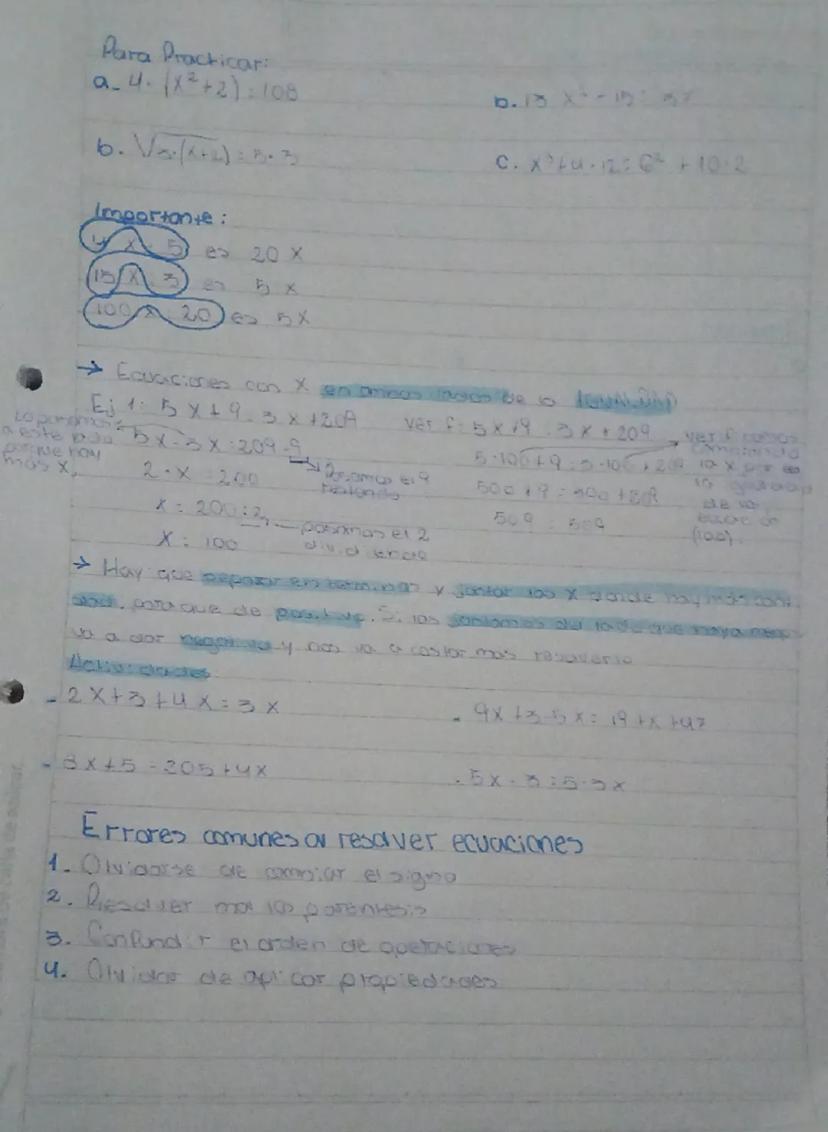 Para Practicar:
a_ 4 · (x² + 2) : 108
b. √3·(x+2) : 5·3
c. x³+4·12 : 6² + 10·2
Importante:
4 x · 5 es 20 x
15 x : 3 es 5 x
100 x : 20 es 5x
→ Ecuaciones con X en ambos lados de la igualdad
Ej 1: 5x + 9 : 3x + 209 Verif: 5x+9 : 3x + 209
Lo ponemos a este lado porque hay más x,
5x - 3x : 209 - 9
→ Pasamos el 9 restando
2 · x : 200
x : 200 : 2
pasamos el 2 dividiendo
x : 100
5·100 + 9 : 3·100 + 209
500 + 9 : 300 + 209
509 : 509
verificamos la x por (100)
→ Hay que separar en terminos y juntar las X donde hay más
para que de positivo. Si las juntamos del lado que haya
va a dar negativo y nos va a costar mas resolverlo
Actividades
- 2x + 3 + 4x = 3x
- 9x + 3 - 5x = 19 + x + 47
- 8x + 5 = 205 + 4x
- 5x - 3 : 5 - 3x
Errores comunes al resolver ecuaciones
1. Olvidarse de cambiar el signo
2. Resolver mal los paréntesis
3. Confundir el orden de operaciones
4. Olvidar de aplicar propiedades